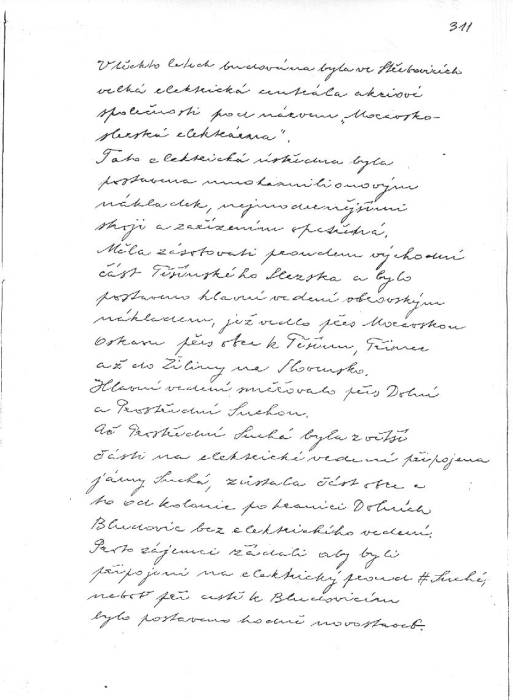 311
V těchto letech budována byla ve Třebovicích
velká elektrická centrála akciové
společnosti pod názvem „Moravsko-
slezská elektrárna".
Tato elektrická ústředna byla
postavena mnohamilionovým
nákladek, nejmodernějšími
stroji a zařízením opatřená.
Měla zásobovati proudem východní
část Těšínského Slezska a bylo
postaveno hlavní vedení obrovským
nákladem, jež vedlo přes Moravskou
Ostravu přes obce k Těšínu, Třinec
a až do Žiliny na Slovensko.
Hlavní vedení směřovalo přes Dolní
a Prostřední Suchou.
Ač Prostřední Suchá byla z větší
části na elektrické vedení připojena
jámy Suchá, zůstala část obce a
to od kolonie po hranici Dolních
Bludovic bez elektrického vedení.
Proto zájemci žádali aby byli
připojeni na elektrický proud # Suché,
neboť při cestě k Bludovicím
bylo postaveno hodně novostaveb.